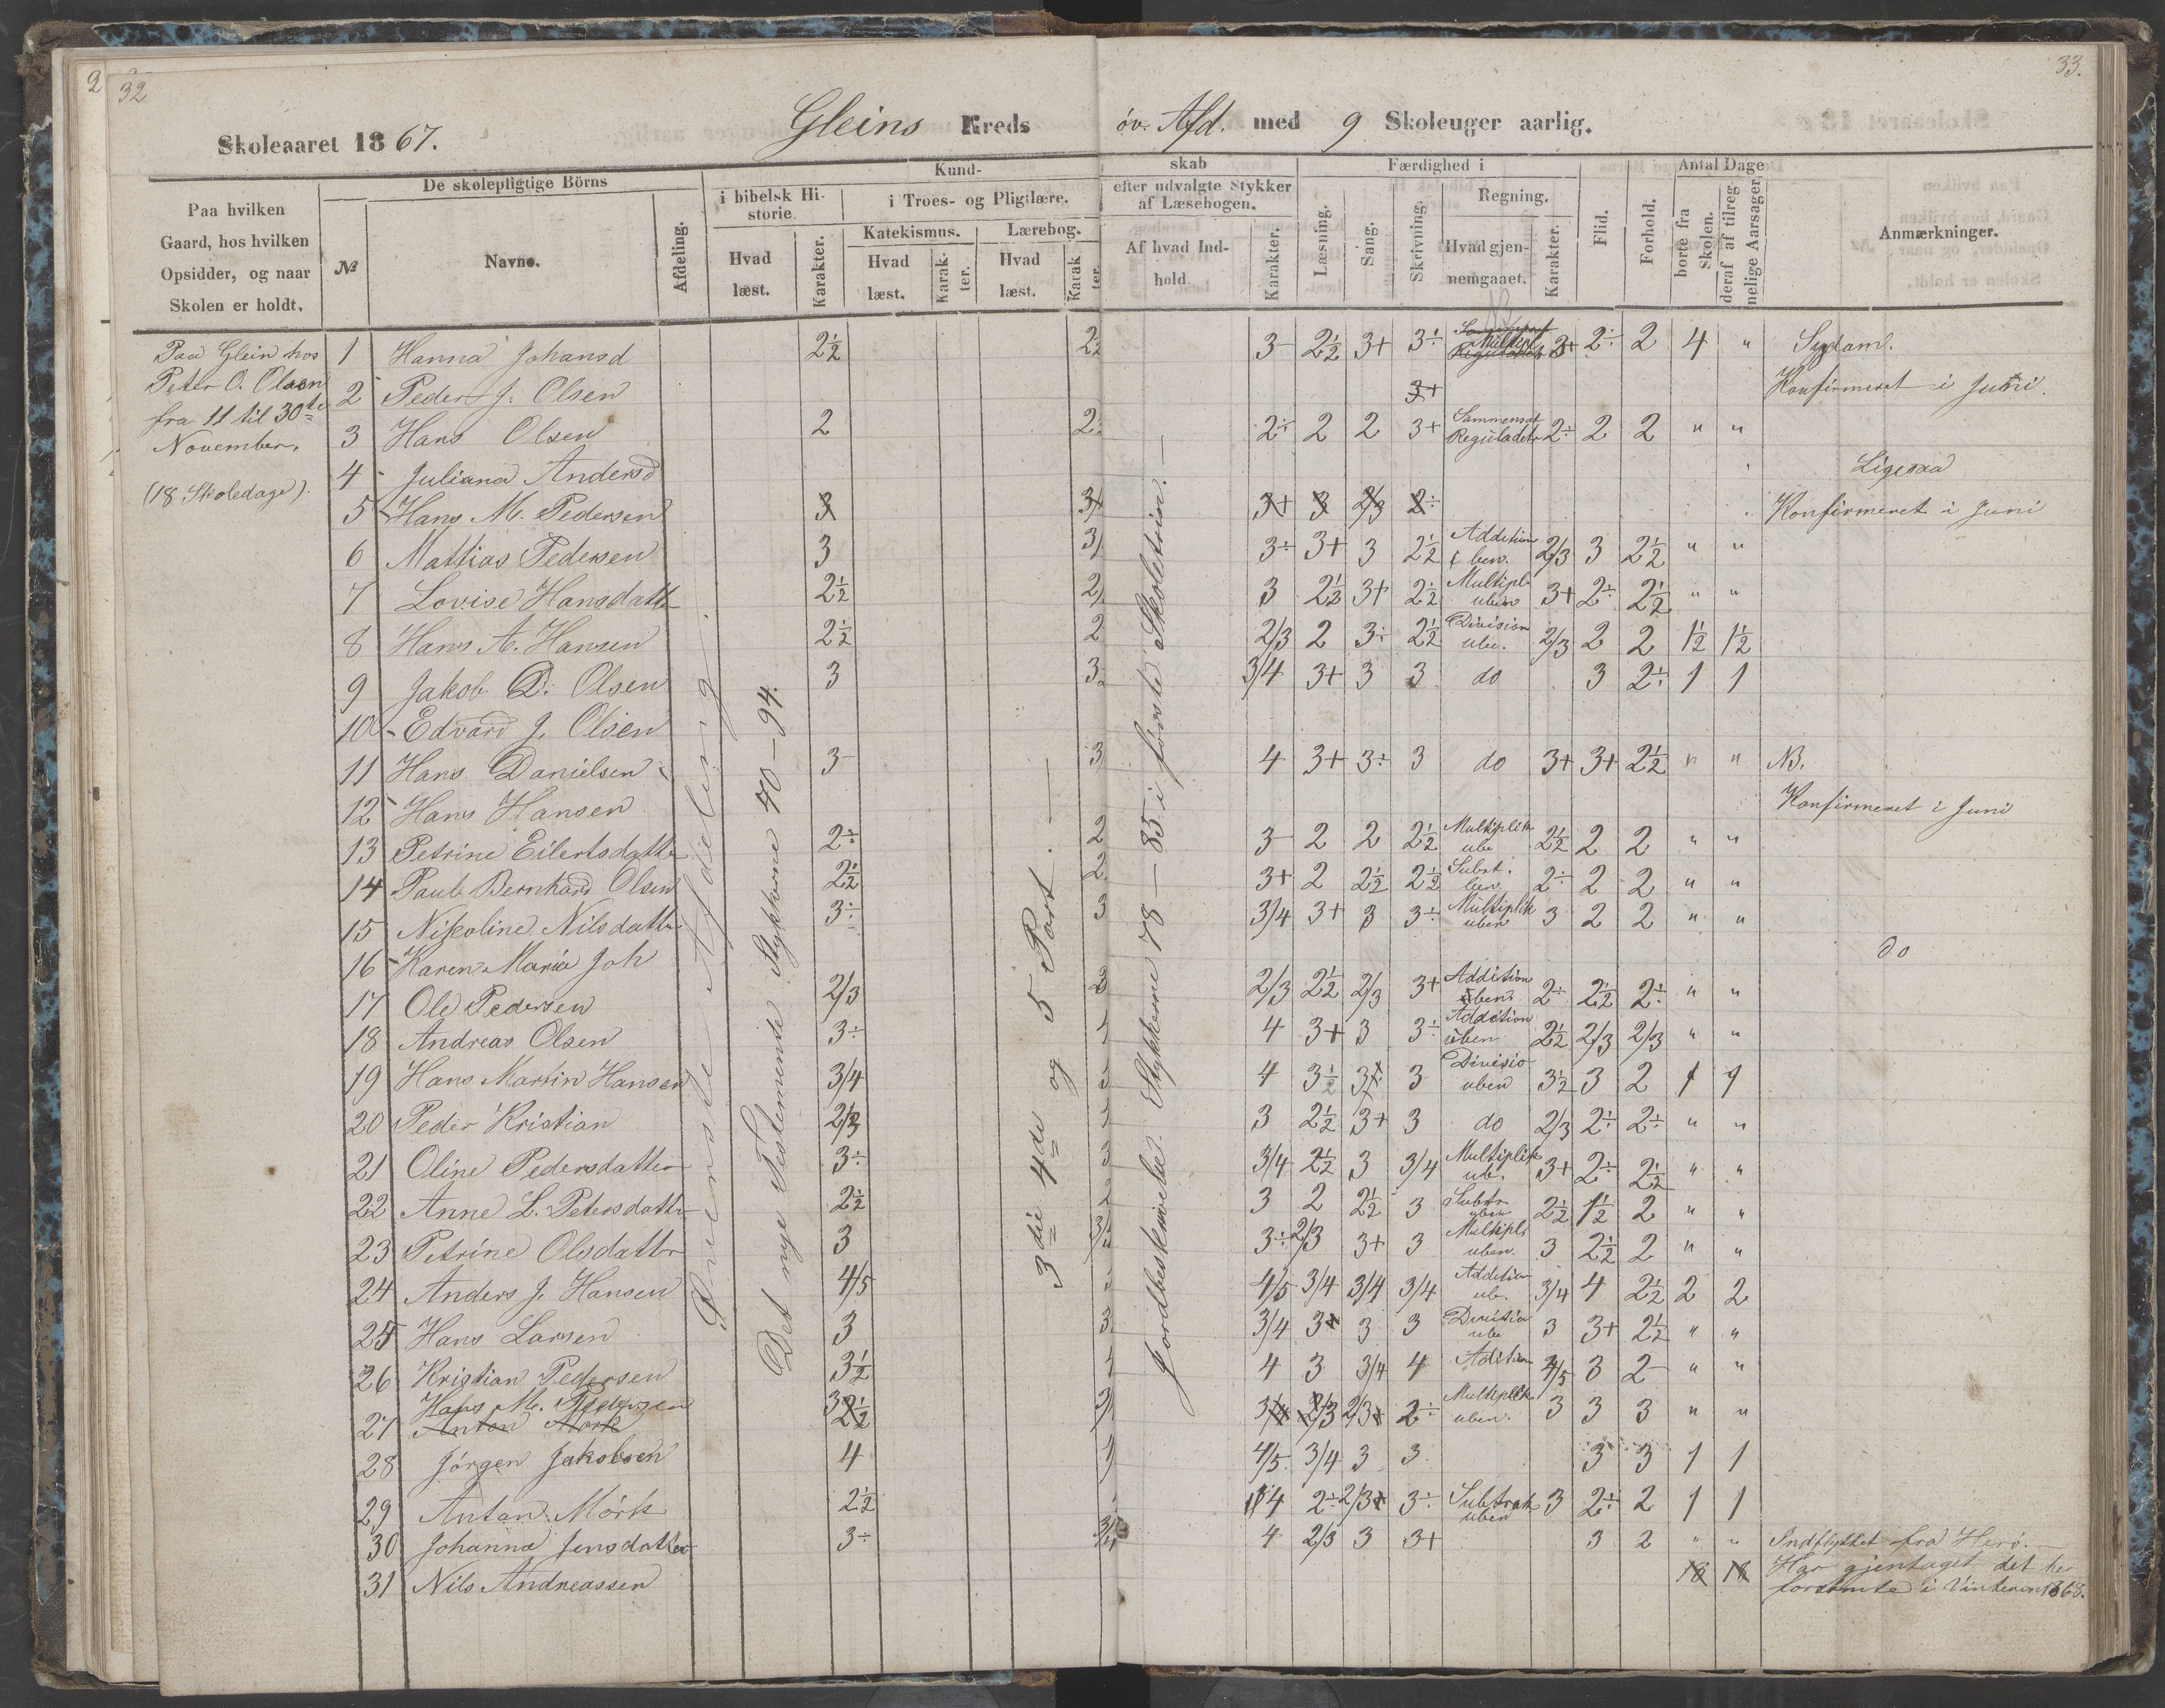 2
32
33.
Skoleaaret 1867.
Gleins Kreds öv. Afd. med 9 Skoleuger aarlig.
Paa hvilken Gaard, hos hvilken Opsidder, og naar Skolen er holdt.
De skolepligtige Börns
№
Navne.
Afdeling.
Kundskab
i bibelsk Historie.
Hvad læst.
Karakter.
i Troes- og Pligtlære.
Katekismus.
Hvad læst.
Karakter.
Lærebog.
Hvad læst.
Karakter.
efter udvalgte Stykker af Læsebogen.
Af hvad Indhold
Karakter.
Færdighed i
Læsning.
Sang.
Skrivning.
Regning.
Hvad gjennemgaaet.
Karakter.
Flid.
Forhold.
Antal Dage
borte fra Skolen.
deraf af tilregnelige Aarsager.
Anmærkninger.
Paa Glein hos
Peter O. Olsen
fra 11 til 30te
November.
(18 Skoledage).
Øverste Afdeling.
Det nye Testemente Stykkerne 70-94.
3die 4de og 5 Part.
Jordbeskrivelse. Stykkerne 78-85 i første Skoletrin.
1 Hanna Johansd 2½ 3- 2½ 3+ 3÷ Multipl 2÷ 2 4 " Sygdam.
2 Peder J. Olsen 3+ Konfirmeret i Juni.
3 Hans Olsen 2 2÷ 2 2 3+ Sammensat Reguladetr 2÷ 2 2 " "
4 Juliana Andersd Ligesaa
5 Hans M. Pedersen 3 3+ 3 2/3 2÷ Konfirmeret i Juni
6 Mattias Pedersen 3 3÷ 3+ 3 2½ Addition ben. 2/3 3 2½ " "
7 Lovise Hansdatt 2½ 3 2½ 3+ 2½ Multipl. uben 3+ 2÷ 2½ " "
8 Hans A. Hansen 2½ 2/3 2 3÷ 2½ Division ube. 2/3 2 2 1½ 1½
9 Jakob D. Olsen 3 3/4 3+ 3 3 do 3 2÷ 1 1
10 Edvard J. Olsen
11 Hans Danielsen 3- 4 3+ 3÷ 3 do 3+ 3+ 2½ " " NB.
12 Hans Hansen Konfirmeret i Juni
13 Petrine Eilertsdatte 2÷ 2 3- 2 2 2½ Multiplik ube 2½ 2 2 " "
14 Paul Bernhard Olsen 2½ 2 3+ 2 2½ 2½ Subst. ben. 2÷ 2 2 " "
15 Nikoline Nilsdatte 3÷ 3 3/4 3+ 3 3÷ Multiplik uben 3 2 2 " "
16 Karen Maria Joh do
17 Ole Pedersen 2/3 2/3 2½ 2/3 3+ Addition uben 2÷ 2½ 2÷ " "
18 Andreas Olsen 3÷ 4 3+ 3 3÷ Addition uben 2½ 2/3 2/3 " "
19 Hans Martin Hansen 3/4 4 3½ 3÷ 3 Divisio uben 3½ 3 2
20 Peder Kristian 2/3 3 2½ 3+ 3 do 2/3 2÷ 2÷ " "
21 Oline Pedersdatter 3÷ 3 3/4 2½ 3 3/4 Multiplik ub. 3+ 2÷ 2½ " "
22 Anne L. Petersdatte 2½ 2 3 2 2½ 3 Subtr. uben 2½ 1½ 2 " "
23 Petrine Olsdatter 3 3÷ 2/3 3+ 3 Multipli uben. 3 2½ 2 " "
24 Anders J. Hansen 4/5 4/5 3/4 3/4 3/4 Addition ub. 3/4 4 2½ 2 2
25 Hans Larsen 3 3 3/4 3+ 3 3 Divisio ube 3 3+ 2½ " "
26 Kristian Pedersen 3½ 4 3 3/4 4 Addition 4/5 3 2- " "
27 Hans M. Pedersen
Anton Mørk 2½ 2/3 2/3 2÷ Multiplik uben. 3 3 3 " "
28 Jörgen Jakobsen 4 4/5 3/4 3 3 3 3 1 1
29 Anton Mörk 2½ 4 2÷ 2/3 3÷ Subtrak uben 3 2÷ 2 1 1
30 Johanna Jensdatter 3÷ 3/4 4 2/3 3 3+ 3 2 " " Indflyttet fra Herö.
31 Nils Andreassen 18 18 Har gjentaget det her
forsömte i Vinteren 1868.